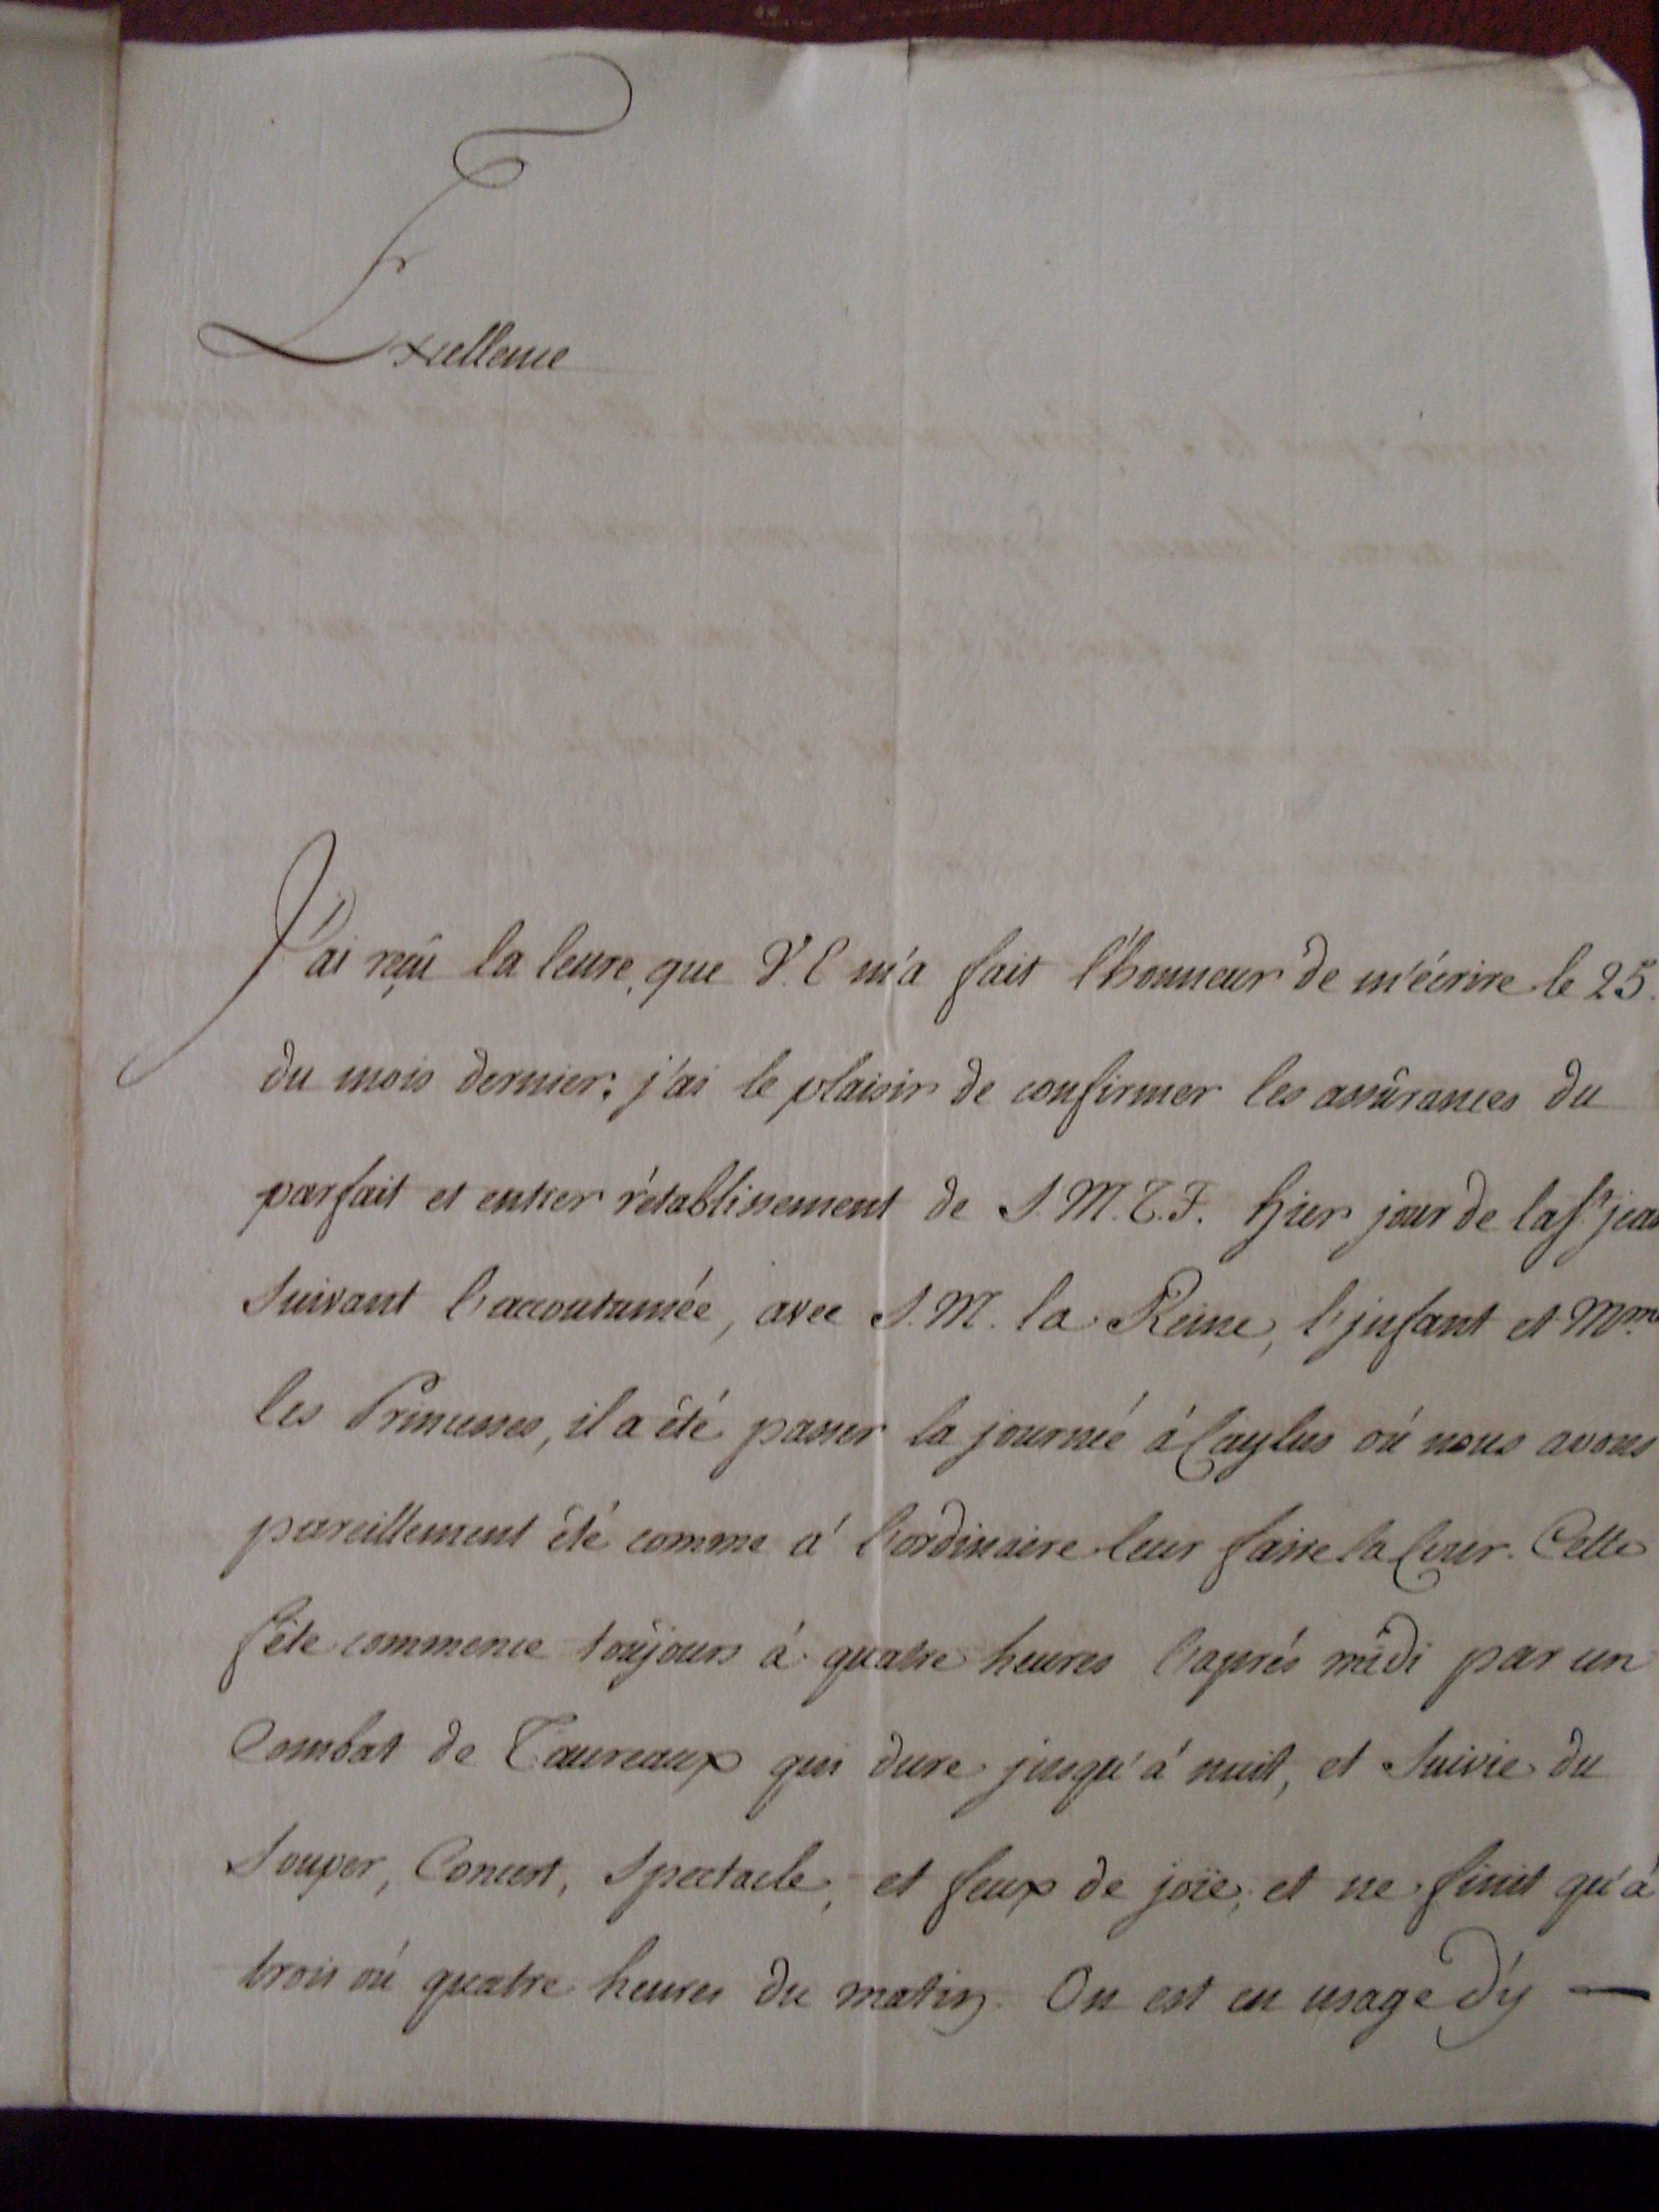 Excellence
J'ai reçû la lettre, que V. E m'a fait l'honneur de m'écrire le 25.
du mois dernier; j'ai le plaisir de confirmer les assûrances du
parfait et entier rétablissement de S. M. T. F. hier jour de la St jean
Suivant l'accoutumée, avec S. M. la Reine, l'jnfant et Mme
les Princesses, il a été passer la journée à Caylus où nous avons
pareillement été comme à l'ordinaire leur faire la Cour. Cette
fête commence toûjours à quatre heures l'aprés midi par un
Combat de Taureaux qui dure jusqu'à nuit, et Suivie du
Souper, Concert, Spectacle, et feux de joïe, et ne finit qu'à
trois où quatre heures du matin. On est en usage d'y —